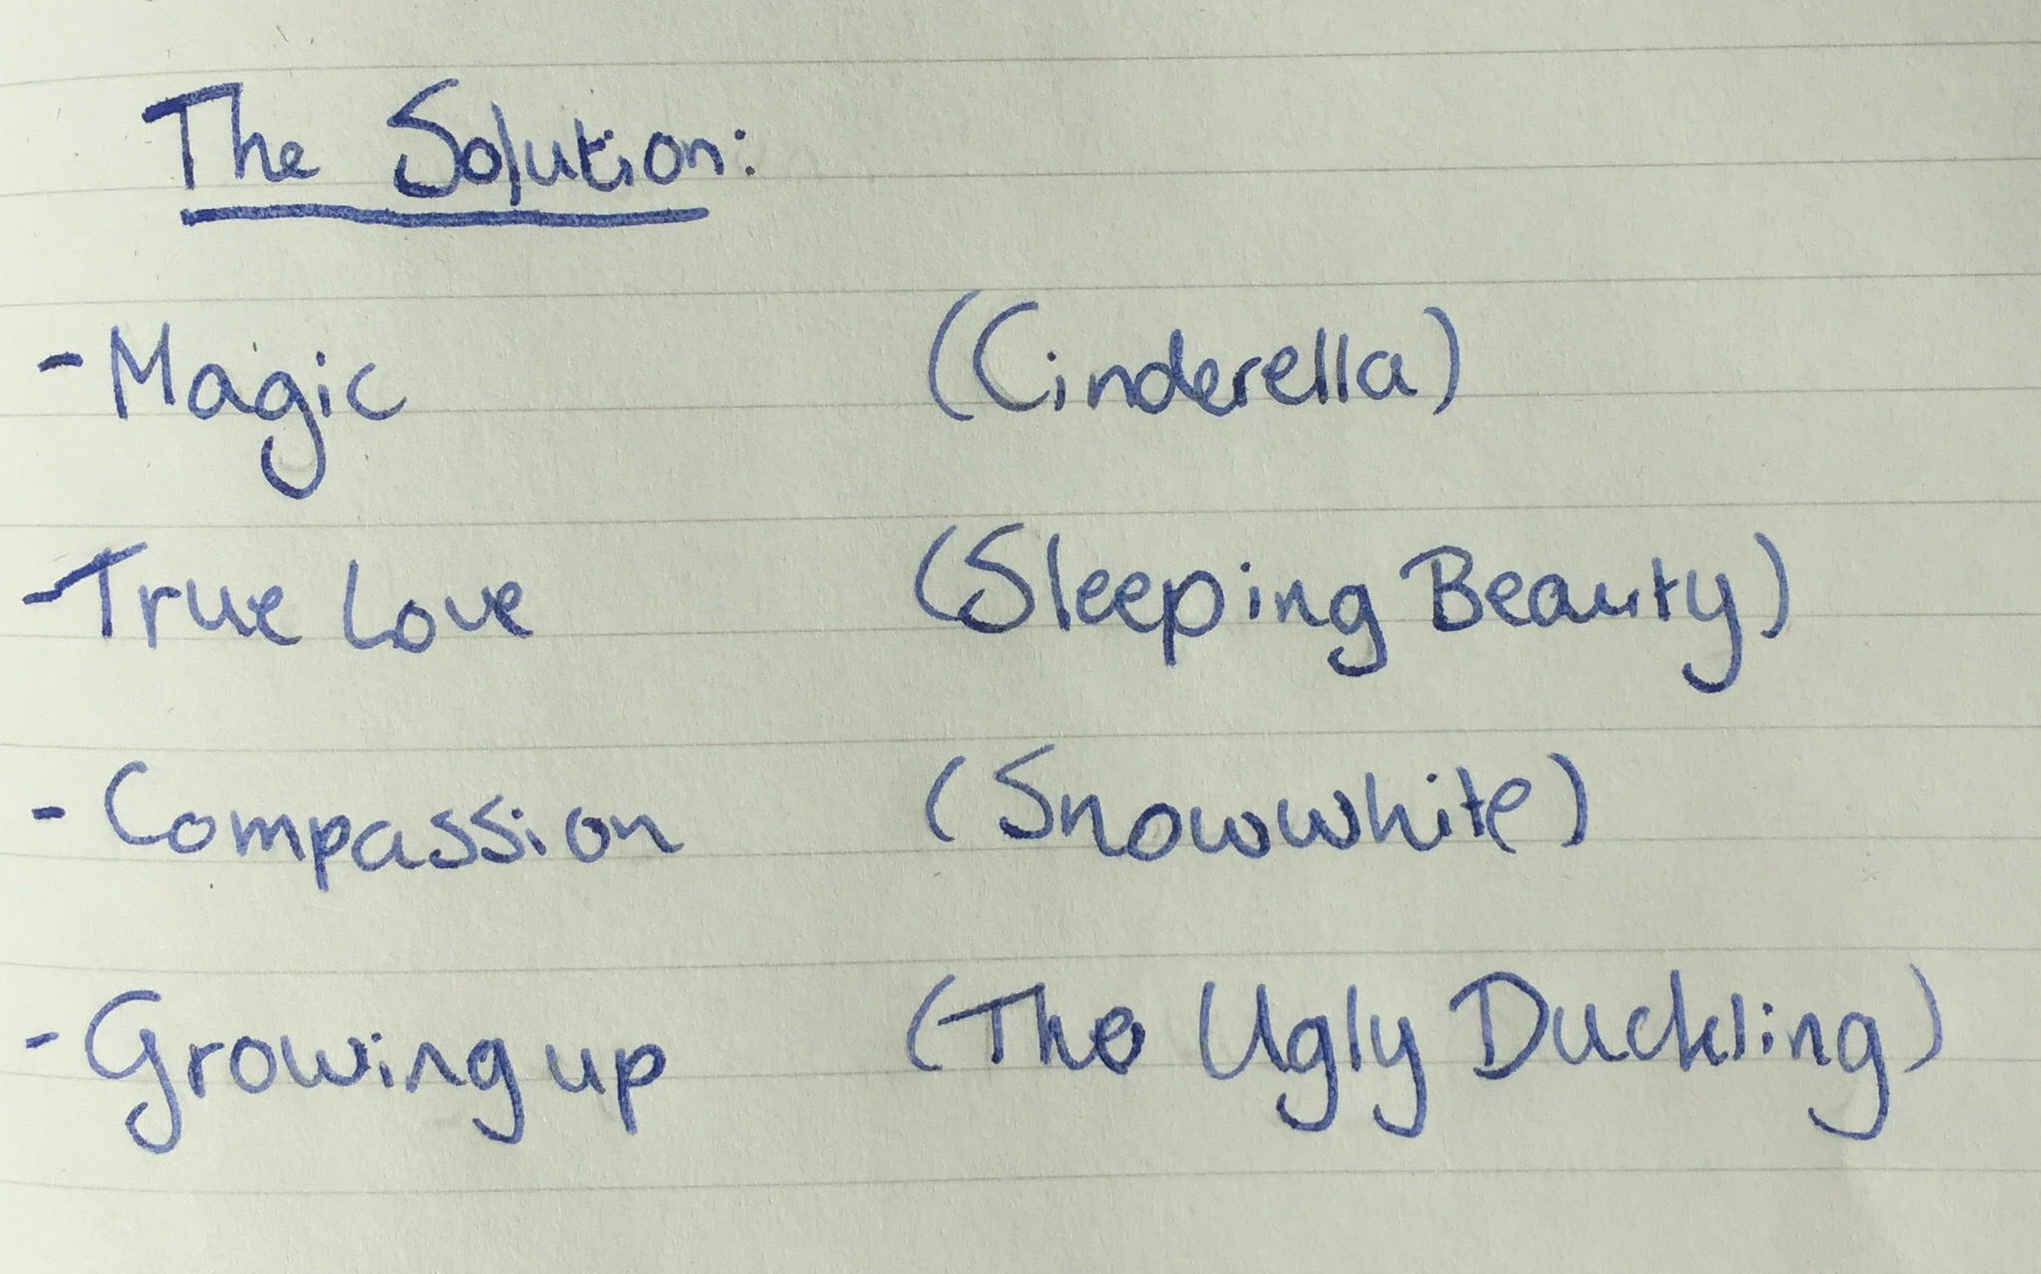 The Solution:
- Magic (Cinderella)
- True Love (Sleeping Beauty)
- Compassion (Snowwhite)
- Growing up (The Ugly Duckling)